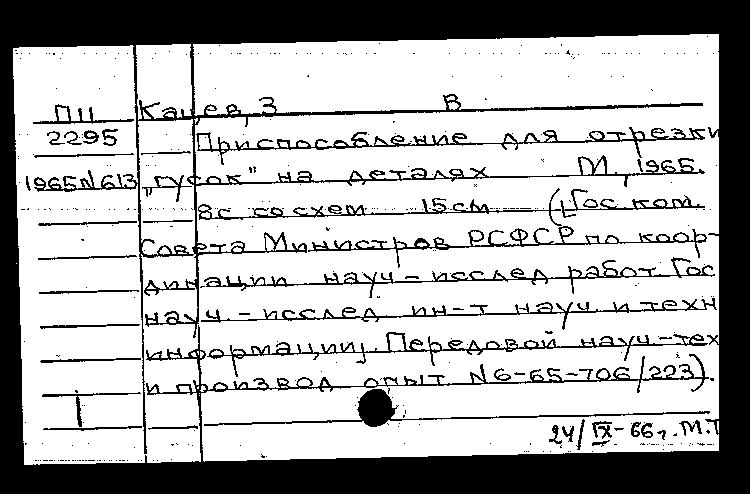 П11 Кацев, З В
2295 Приспособление для отрезки
1965 N 613 „гусок" на деталях М., 1965.
8с. со схем 15 см ([Гос. ком.
Совета Министров РСФСР по коор-
динации науч-исслед работ. Гос
науч.-исслед ин-т науч и техн
информации]. Передовой науч-тех
и производ опыт. N 6-65-706/223).
24/IX-66г. М.Т